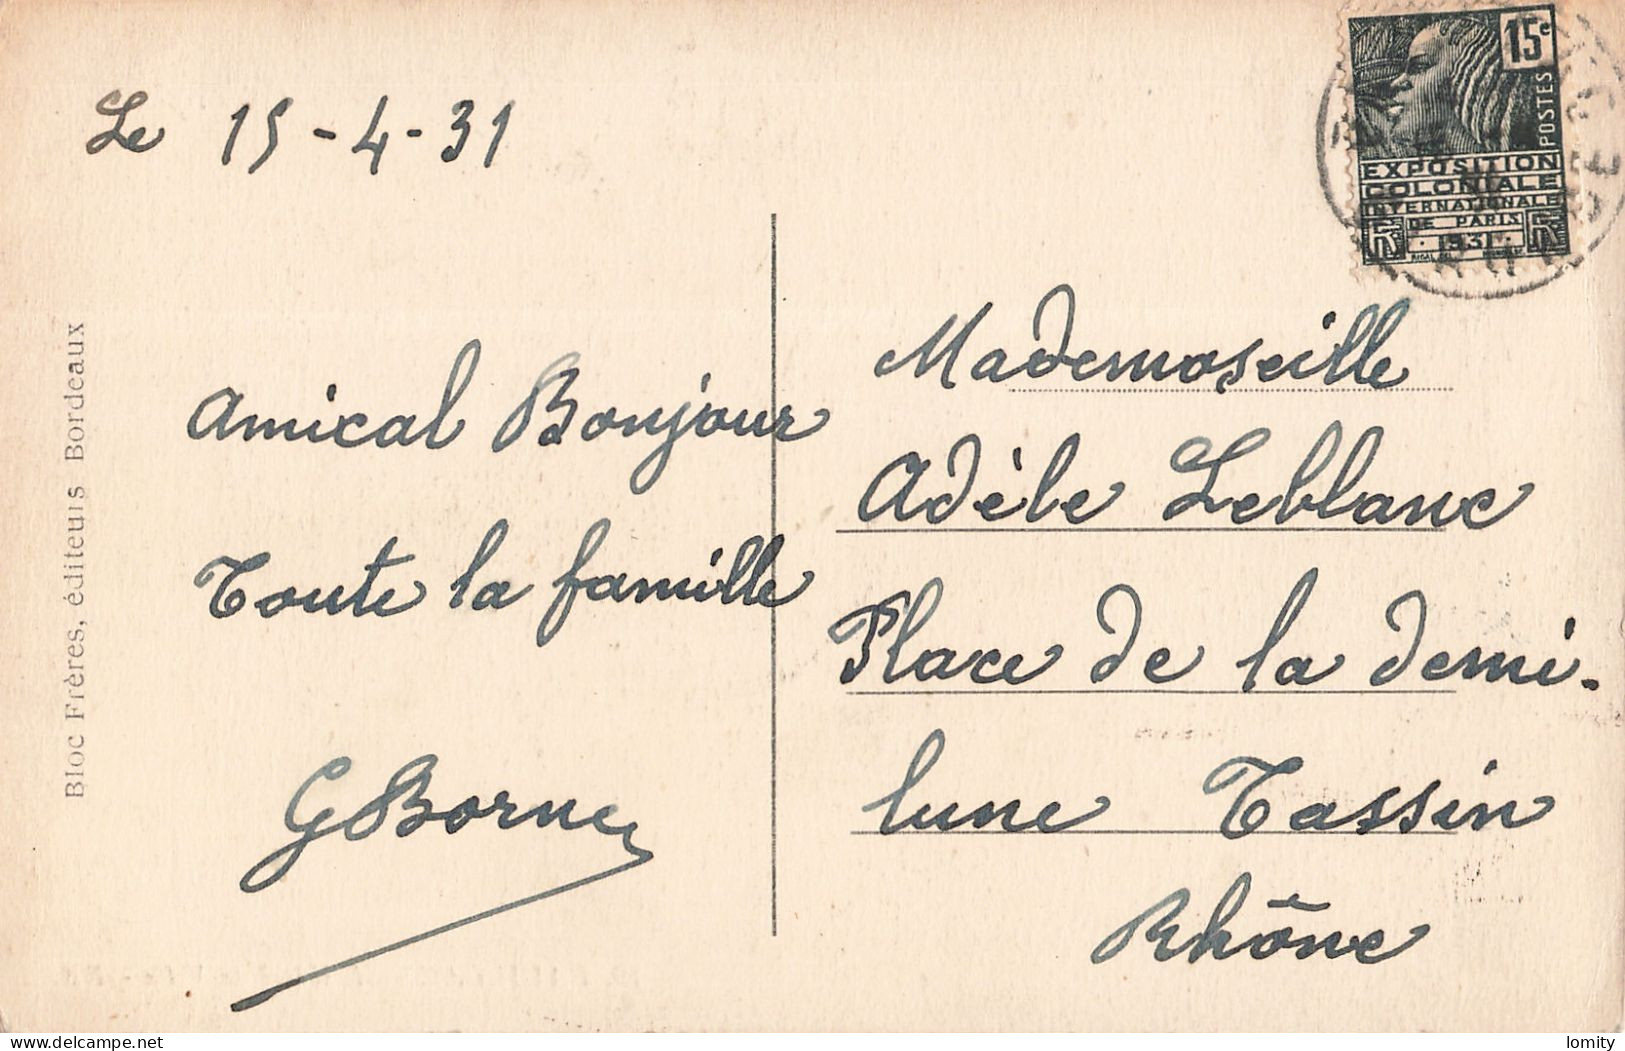 Le 15-4-31
Amical Bonjour
Toute la famille
GBorne
Bloc Frères, éditeurs Bordeaux
15c
POSTES
EXPOSITION
COLONIALE
INTERNATIONALE
DE PARIS
1931
RF
Mademoseille
Adèle Leblanc
Place de la demi-
lune Tassin
Rhône
delcampe.net
lomity